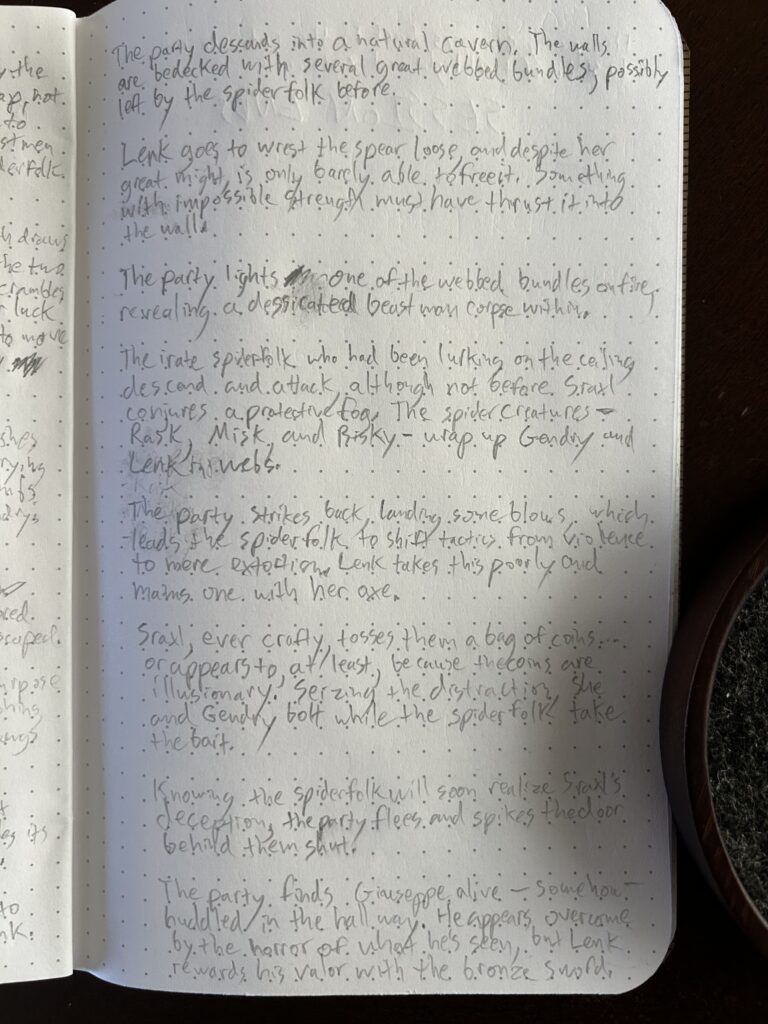 The party descends into a natural cavern. The walls
are bedecked with several great webbed bundles, possibly
left by the spiderfolk before.
Lenk goes to wrest the spear loose, and despite her
great might, is only barely able to free it. Something
with impossible strength must have thrust it into
the wall.
The party lights one of the webbed bundles on fire,
revealing a dessicated beastman corpse within.
The irate spiderfolk who had been lurking on the ceiling
descend and attack, although not before Sraxl
conjures a protective fog. The spider creatures -
Rask, Misk, and Bisky - wrap up Gendry and
Lenk in webs.
The party strikes back, landing some blows, which
leads the spiderfolk to shift tactics from violence
to mere extortion. Lenk takes this poorly and
maims one with her axe.
Sraxl, ever crafty, tosses them a bag of coins...
or appears to, at least, because the coins are
illusionary. Seizing the distraction, she
and Gendry bolt while the spiderfolk take
the bait.
Knowing the spiderfolk will soon realize Sraxl's
deception, the party flees and spikes the door
behind them shut.
The party finds Giuseppe alive - somehow -
huddled in the hallway. He appears overcome
by the horror of what he's seen, but Lenk
rewards his valor with the bronze sword.